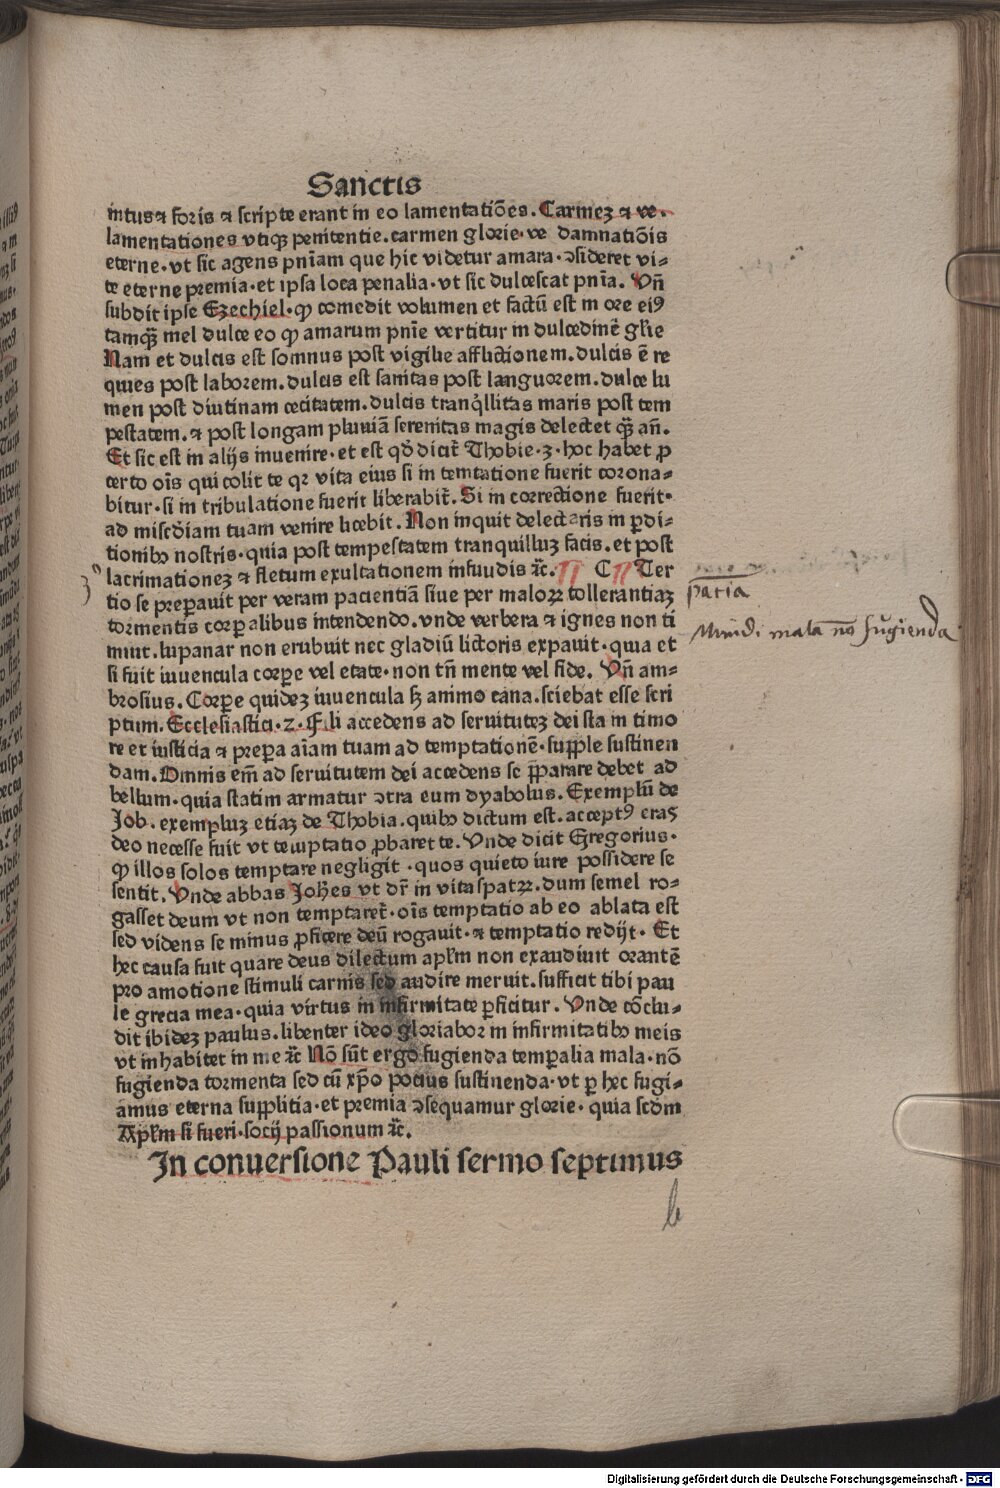 Sanctis
intus ⁊ foris ⁊ scripte erant in eo lamentatiōes. Carmeꝫ ⁊ ve.
lamentationes vtiqꝫ penitentie. carmen glorie. ve damnatiōis
eterne. vt sic agens pn̄iam que hic videtur amara. ↄsideret vi⸗
te eterne premia. et ipsa loca penalia. vt sic dulcescat pn̄ia. Vn̄
subdit ipse Ezechiel. ꝙ comedit volumen et factū est in ore eiꝰ
tamqꝫ mel dulce eo ꝙ amarum pnīe vertitur in dulcedinē glīe
Nam et dulcis est somnus post vigilie afflictionem. dulcis ē re
quies post laborem. dulcis est sanitas post languorem. dulce lu
men post diutinam cecitatem. dulcis tranq̇llitas maris post tem
pestatem. ⁊ post longam pluuiā serenitas magis delectet qꝫ an̄.
Et sic est in alijs inuenire. et est qd̓ dicit᷑ Thobie. 3. hoc habet ꝓ
certo oīs qui colit te qꝛ vita eius si in temtatione fuerit corona⸗
bitur. si in tribulatione fuerit liberabit᷑. Si in correctione fuerit.
ad misc̄diam tuam venire licebit. Non inquit delectaris in ꝑdi⸗
tionibꝰ nostris. quia post tempestatem tranquilluꝫ facis. et post
lacrimationeꝫ ⁊ fletum exultationem infuudis ⁊c̄. C Ter
tio se preꝑauit per veram pacientiā siue per maloꝝ tollerantiaꝫ
tormentis corꝑalibus intendendo. vnde verbera ⁊ ignes non ti
muit. lupanar non erubuit nec gladiū lictoris expauit. quia et
si fuit iuuencula corꝑe vel etate. non tn̄ mente vel fide. Vn̄ am⸗
brosius. Corꝑe quideꝫ iuuencula sꝫ animo cana. sciebat esse scri
ptum. Ecclesiastici. 2. Fili accedens ad seruituteꝫ dei sta in timo
re et iusticia ⁊ preꝑa aīam tuam ad temptationē. supple sustinen
dam. Omnis em̄ ad seruitutem dei accedens se p̄parare debet ad
bellum. quia statim armatur ↄtra eum dyabolus. Exemplū de
Job. exempluꝫ etiaꝫ de Thobia. quibꝰ dictum est. acceptꝰ eras
deo necesse fuit vt tewptatio ꝓbaret te. Vnde dicit Gregorius.
ꝙ illos solos temptare negligit. quos quieto iure possidere se
sentit. Vnde abbas Joh̄es vt dr̄ in vitaspatꝝ. dum semel ro⸗
gasset deum vt non temptaret᷑. oīs temptatio ab eo ablata est
sed videns se minus ꝓficere deū rogauit. ⁊ temptatio redijt. Et
hec causa fuit quare deus dilectum apl̄m non exaudiuit orantē
pro amotione stimuli carnis sed audire meruit. sufficit tibi pau
le grecia mea. quia virtus in infirmitate ꝑficitur. Vnde cōclu⸗
dit ibideꝫ paulus. libenter ideo gloriabor in infirmitatibꝰ meis
vt inhabitet in me ⁊c̄ Nō sūt ergo fugienda temꝑalia mala. nō
fugienda tormenta sed cū xp̄o pocius sustinenda. vt ꝑ hec fugi⸗
amus eterna supplitia. et premia ↄsequamur glorie. quia scd̄m
Apl̄m si fueri. socij passionum ⁊c̄.
In conuersione Pauli sermo septimus
3º
pacīa
Mundi mala nō fugienda
b
Digitalisierung gefördert durch die Deutsche Forschungsgemeinschaft - DFG